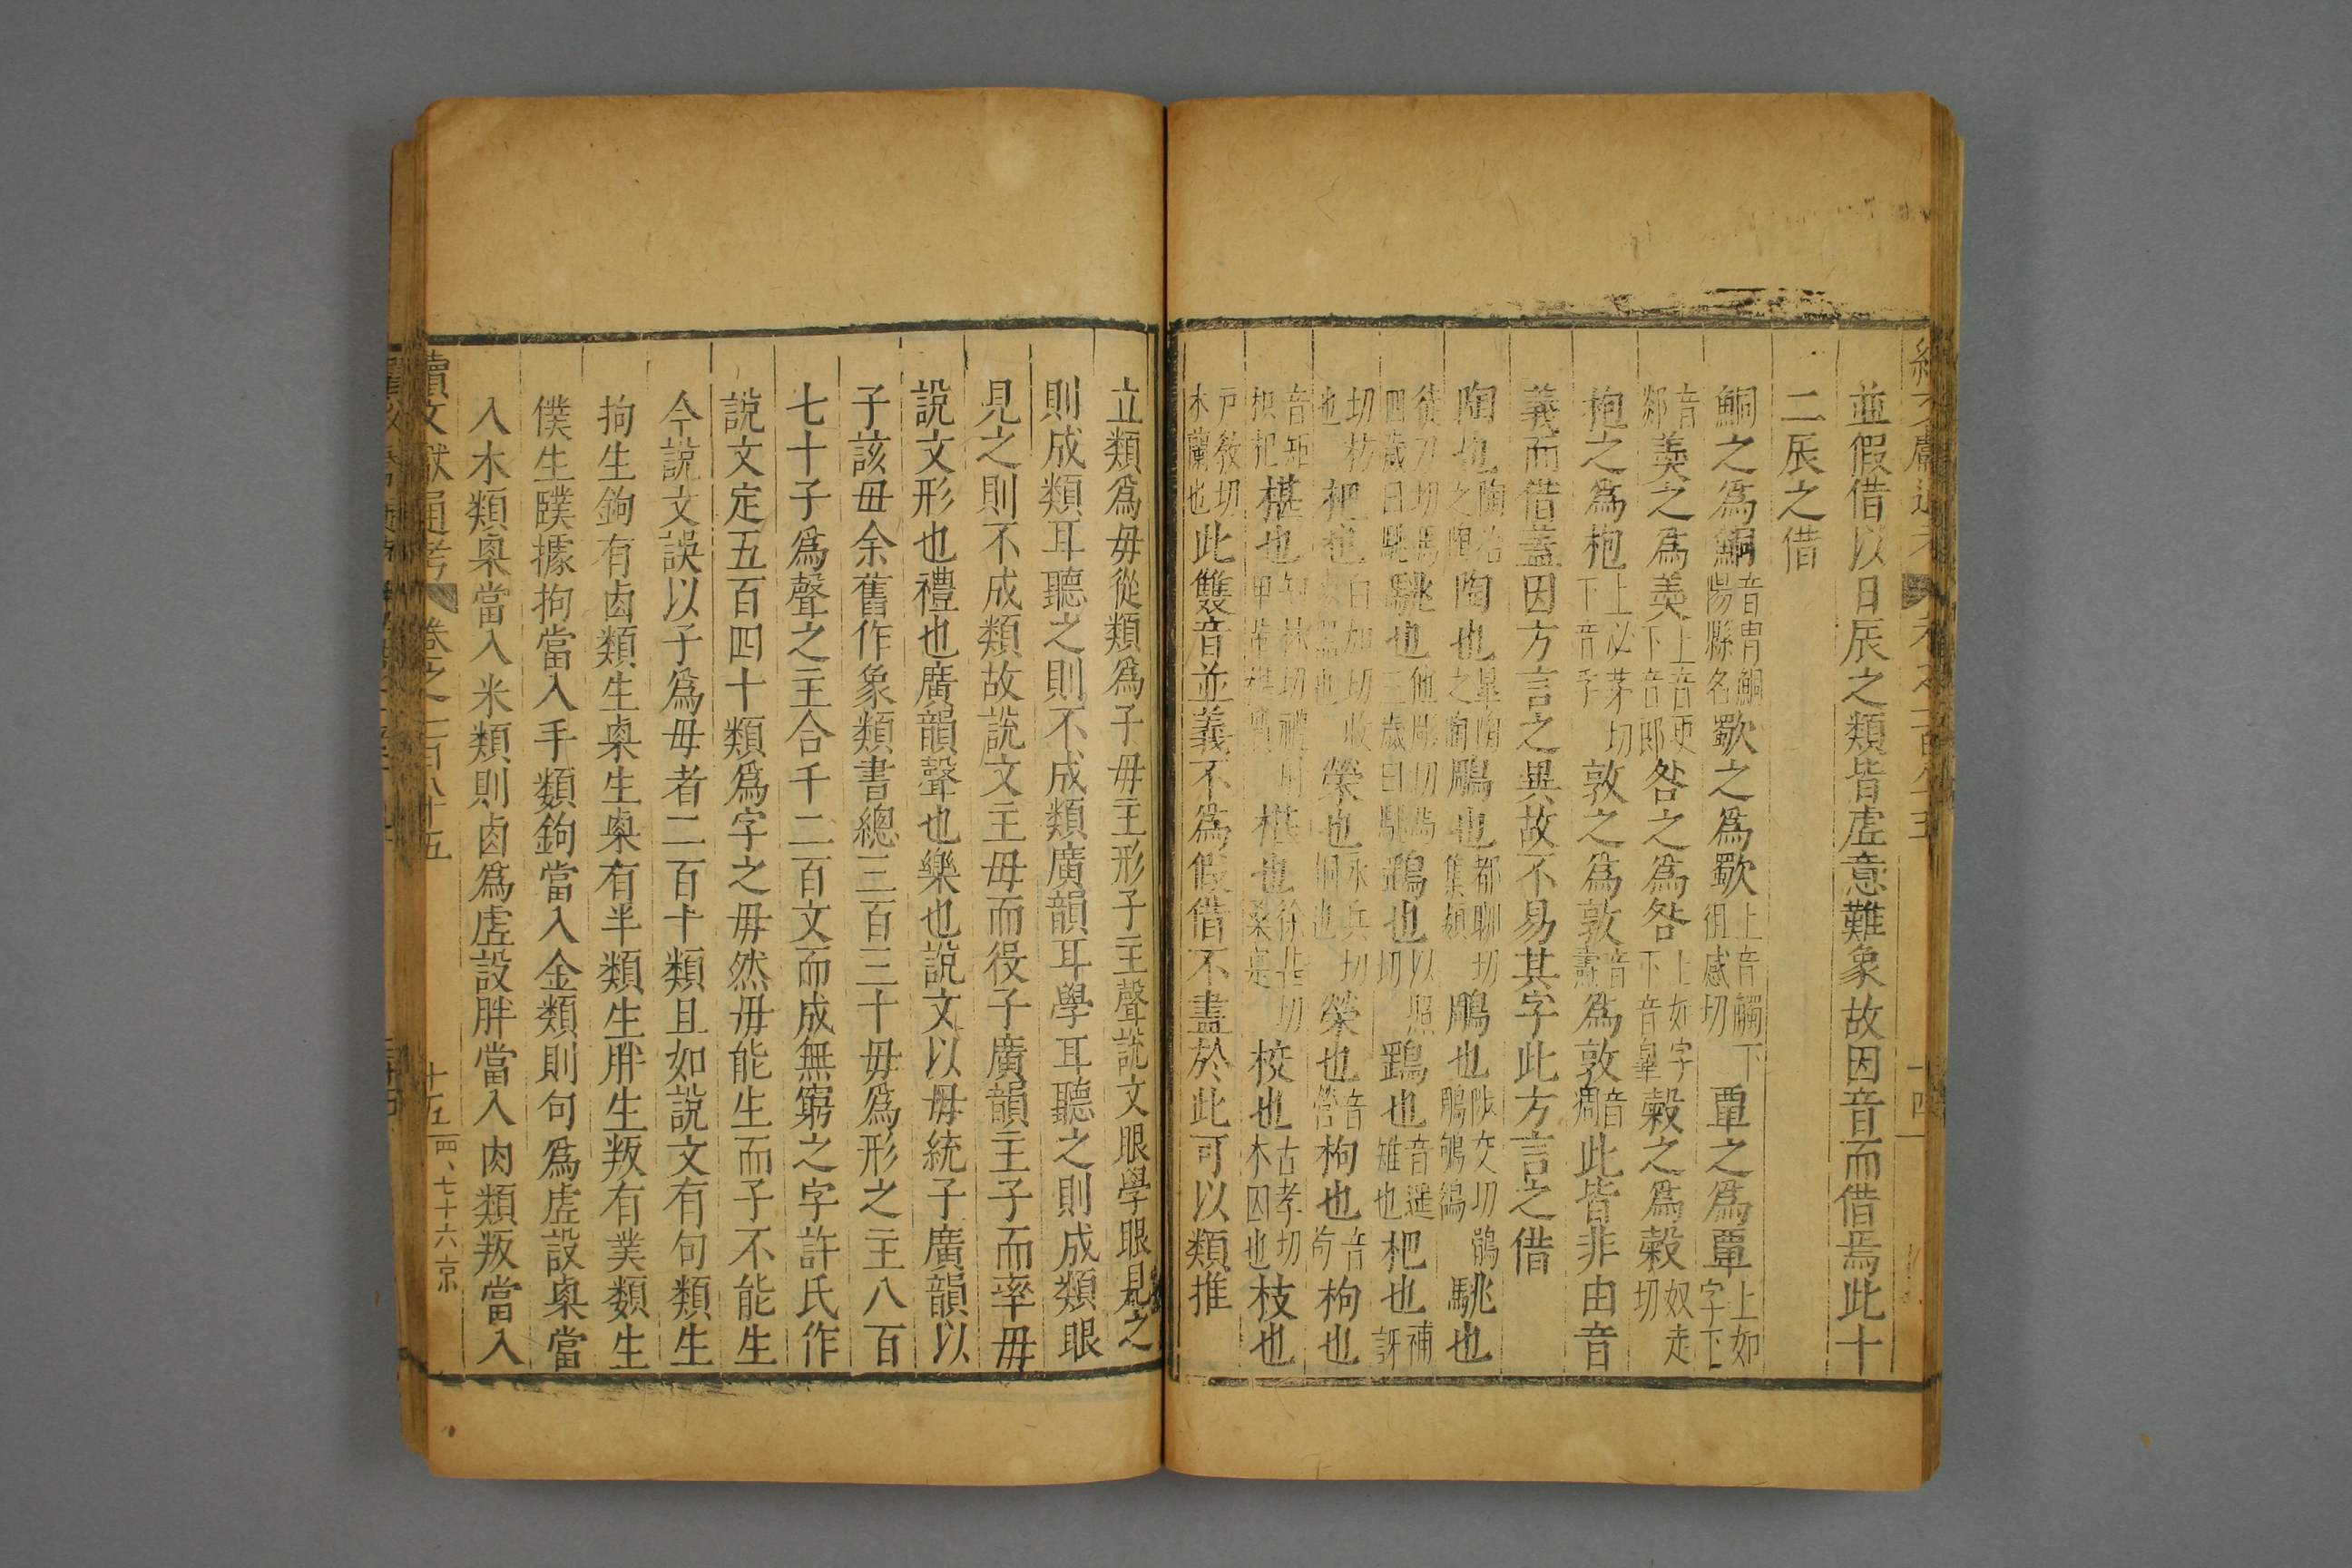 並假借以日辰之類皆虛意難象故因音而借焉此十
二辰之借
鮦之爲鮦音胄鮦陽縣名歜之爲歜上音觸下徂感切覃之爲覃上如字下
音郯羮之爲羮上音更下音郎咎之爲咎上如字下音皐穀之爲穀奴走切
枹之爲枹上必茅切下音孚敦之爲敦音燾爲敦音彫此皆非由音
義而借蓋因方言之異故不易其字此方言之借
陶也陶冶之陶陶也皐陶之陶鵰也都聊切集類鵰也陟交切鵰鵃鶻鵃駣也
徒刀切馬四歲曰駣駣也他彫切馬三歲曰駣鷂也以照切鷂也音遥雉也杷也補訝
切枋也杷也白加切收器也榮也永兵切桐也榮也音營枸也音苟枸也
音矩枳把椹也知林切椹也桑葚校也古孝切木囚也校也
戸教切木闌也此雙音並義不爲假借不盡於此可以類推
立類爲毋從類爲子毋主形子主聲説文眼學眼見之
則成類耳聽之則不成類廣韻耳學耳聽之則成類眼
見之則不成類故説文主毋而役子廣韻主子而率毋
説文形也禮也廣韻聲也樂也説文以毋統子廣韻以
子該毋余舊作象類書總三百三十毋爲形之主八百
七十子爲聲之主合千二百文而成無窮之字許氏作
説文定五百四十類爲字之毋然毋能生而子不能生
今説文誤以子爲毋者二百十類且如説文有句類生
拘生鉤有鹵類生㮚生𥻆有半類生胖生叛有業類生
僕生䑑據拘當入手類鉤當入金類則句爲虛設㮚當
入木類𥻆當入米類則鹵爲虛設胖當入肉類叛當入
續文獻通考 卷之一百八十五 十五 四、七十六京